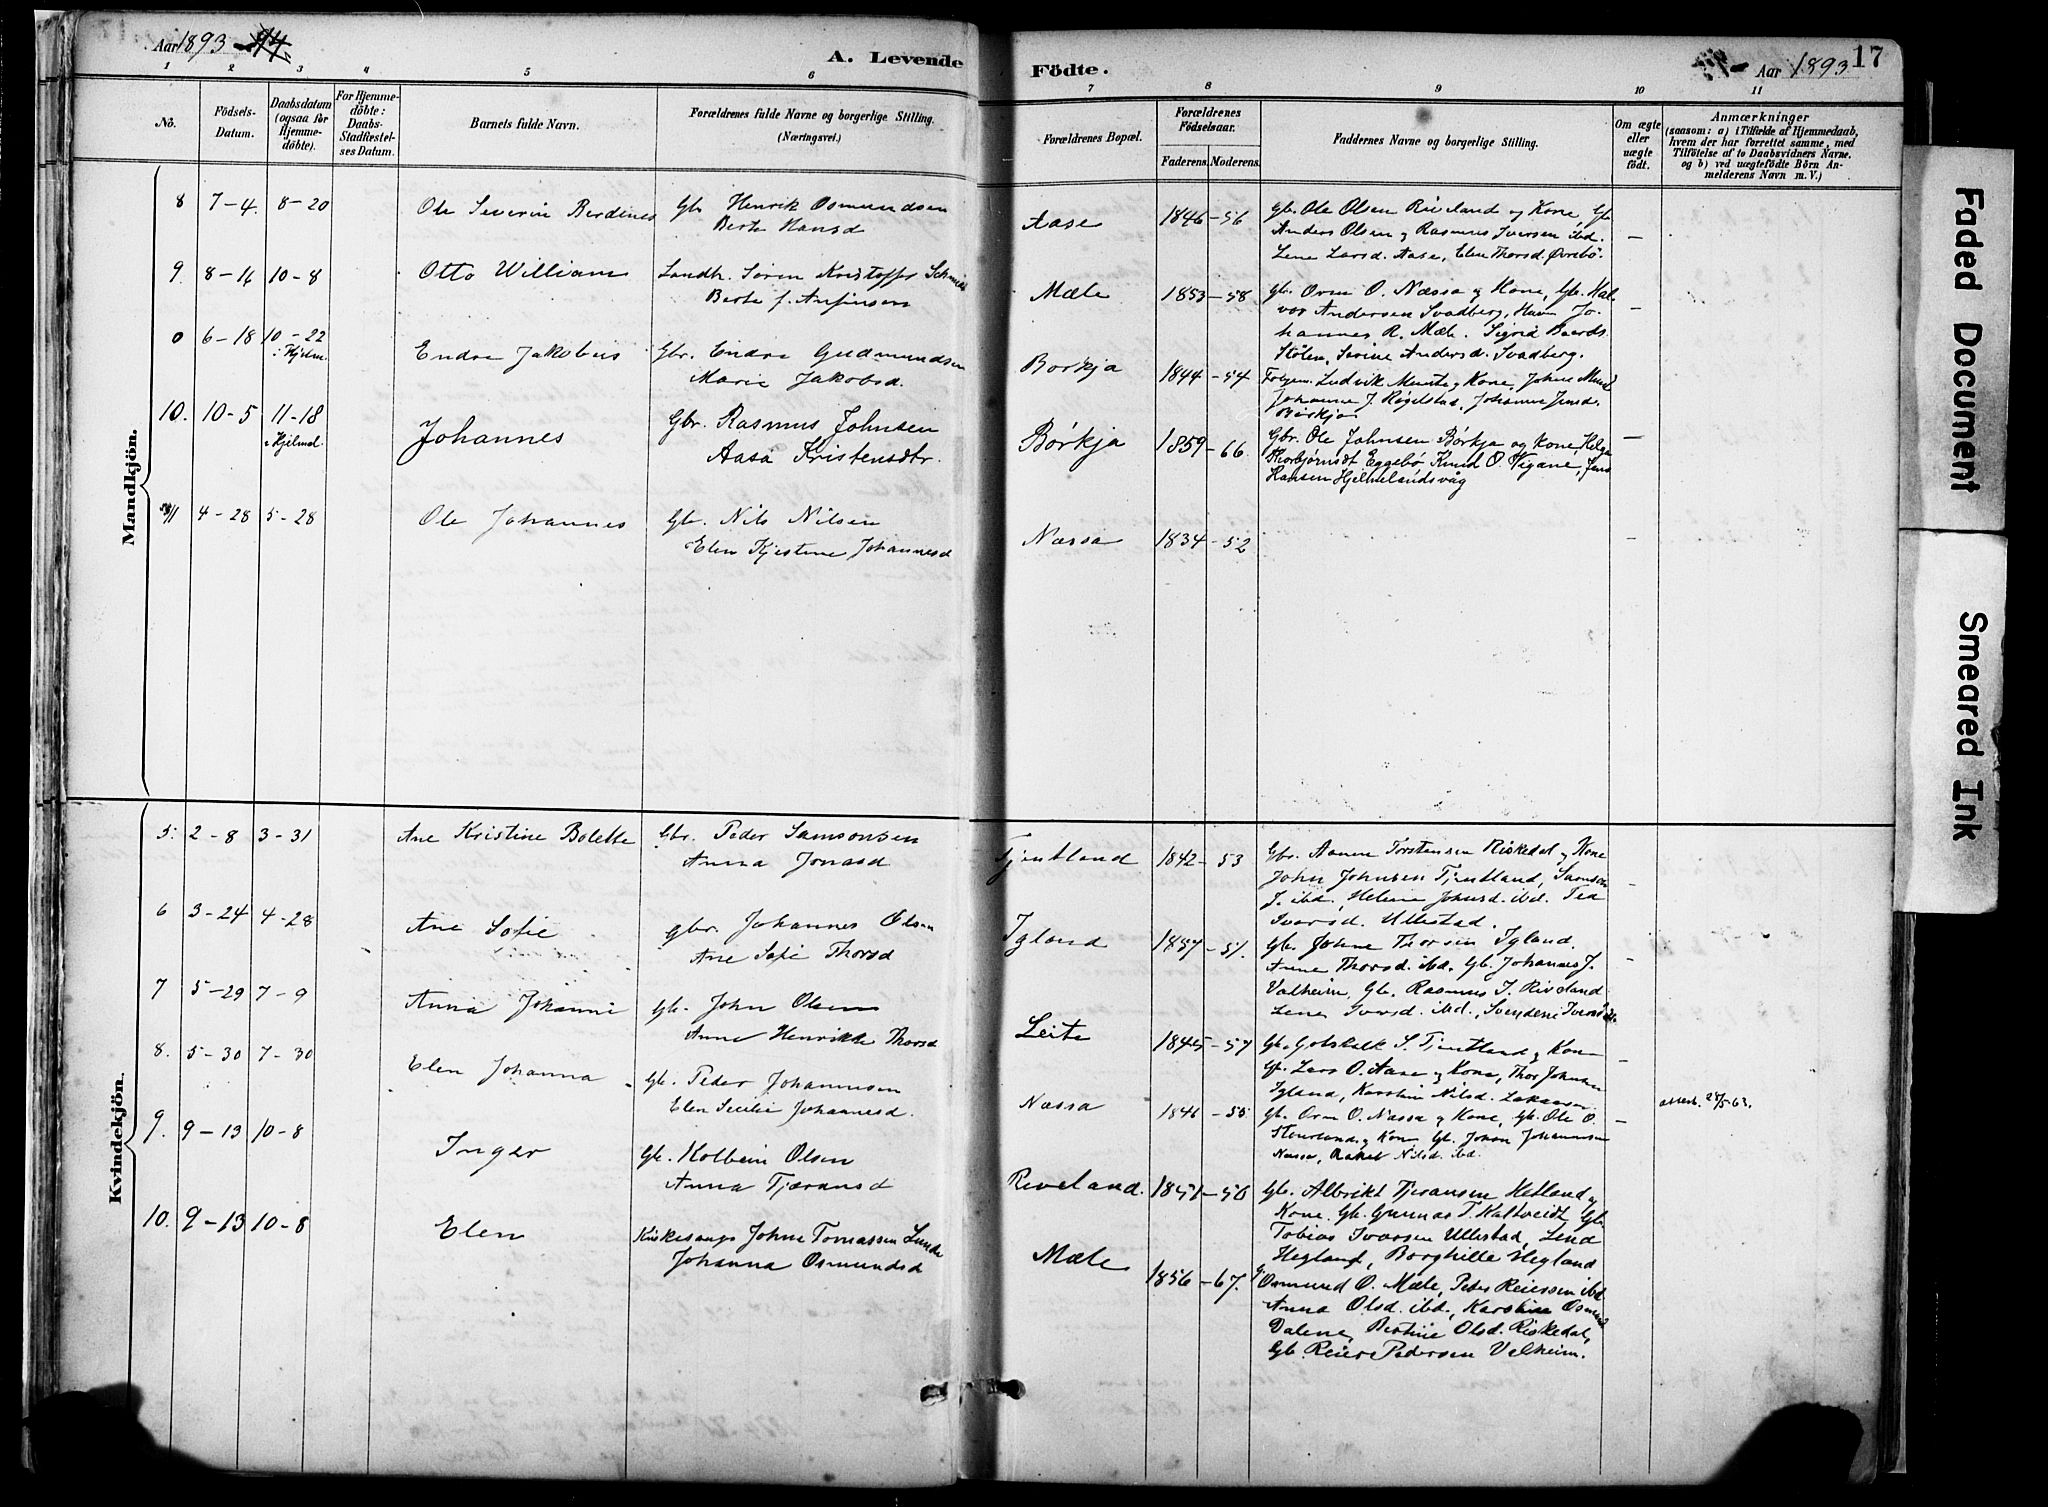 Aar 1893 - 94.
A. Levende
Födte.
Aar 1893
17
1 2 3 4 5 6 7 8 9 10 11
No.
Födsels-
Datum.
Daabsdatum
(ogsaa for
Hjemme-
döbte).
For Hjemme-
döbte:
Daabs-
Stadfæstel-
ses Datum.
Barnets fulde Navn.
Forældrenes fulde Navne og borgerlige Stilling.
(Næringsvei.)
Forældrenes Bopæl.
Forældrenes
Födselsaar.
Faderens. Moderens.
Faddernes Navne og borgerlige Stilling.
Om ægte
eller
uægte
födt.
Anmærkninger
(saasom: a) i Tilfælde af Hjemmedaab,
hvem der har forrettet samme, med
Tilföielse af to Daabsvidners Navne,
og b) ved uægtefödte Börn An-
melderens Navn m. V.)
Mandkjön.
8 7-4. 8-20 Ole Severin Berdenes Gb. Henrik Osmundsen
Berte Hansd
Aase 1846-56 Gb. Ole Olsen Riveland og Kone, Gb.
Anders Olsen og Rasmus Iversen ibd.
Lene Larsd. Aase, Elen Thorsd. Øvrebö. –
9. 8-14 10-8 Otto William Landh. Sören Kristoffer Schmidt
Berte f. Anfinsen
Mæle 1853-58 Gb. Orm O. Næssa og Kone, Gb. Hal-
vor Andersen Svadberg, Huum Jo-
hannes R. Mæle. Sigrid Baards.
Stölen, Serine Andersd. Svadberg. –
0 6-18 10-22
i Hjelm.
Endre Jakobus Gbr. Endre Gudmundsen
Marie Jakobsd.
Borkja 1844-54 Ludvik Munte og Kone, Johne
Johanne J. Rögelstad, Johanne Jensd.
Börkja
10. 10-5 11-18
i Hjelmel.
Johannes Gbr. Rasmus Johnsen
Aasa Kristensdtr.
Børkja 1859-66. Gbr. Ole Johnsen Børkja og Kone, Helge
Thorbjørnsdt Eggebø, Knud O. Vigane, Jens
Hansen Hjelmelandsvåg –
11 4-28 5-28 Ole Johannes Gb. Nils Nilsen
Elen Kjestine Johannesd
Næssa 1834-52 –
Kvindekjön.
5. 2-8 3-31 Ane Kristine Bolette Gbr. Peder Samsonsen
Anna Jonasd
Tjentland 1842-53 Gbr. Aanen Torstensen Riskedal og Kone
John Johnsen Tjentland, Samson
J. ibd, Helene Johnsd. ibd. Tea
Ivarsd. Ullestad. –
6 3-24 4-28 Ane Sofie Gbr. Johannes Olsen
Ane Sofie Thorsd
Igland 1857-51. Gb. Johne Thorsen Igland.
Anne Thorsd. ibd. Gb. Johannes J.
Valheim, Gb. Rasmus I. Riveland
Lene Ivarsd. ibd., –
7 5-29 7-9 Anna Johanne Gb. John Olsen
Anne Henrikke Thorsd
Leite 1845-57 Gb. Gotskalk S. Tjentland og Kone
Gb. Lars O. Aase og Kone, Thor Johnsen
Igland, Karstin Nilsd. –
8. 5-30 7-30 Elen Johanna Gb. Peder Johannesen
Elen Secilie Johannesd.
Næssa 1846-55 Gb. Orm O. Næssa og Kone, Gb. Ole O.
og Kone, Gb. Johan Johannesen
Næssa, Rakel Nilsd. ibd. –
attest. 27/5-63.
9. 9-13 10-8 Inger Gb. Kolbein Olsen
Anna Tjæransd
Riveland. 1851-50 Gb. Albrikt Tjeransen Hetland og
Kone. Gb. Gunnar T. Kaltveidt Gb.
Tobias Ivarsen Ullestad, Lena
Hegland, Borghille Hegland
10. 9-13 10-8 Elen Kirkesangr Johne Tomassen Lunde
Johanna Osmundsd
Mæle 1856-67. Gb. Osmund O. Mæle, Peder Reiersen ibd
Anna Olsd. ibd, Karstine Osmund
Dalene, Bertine Olsd. Riskedal,
Gb. Reier Pedersen Velheim.
Faded Document
Smeared Ink